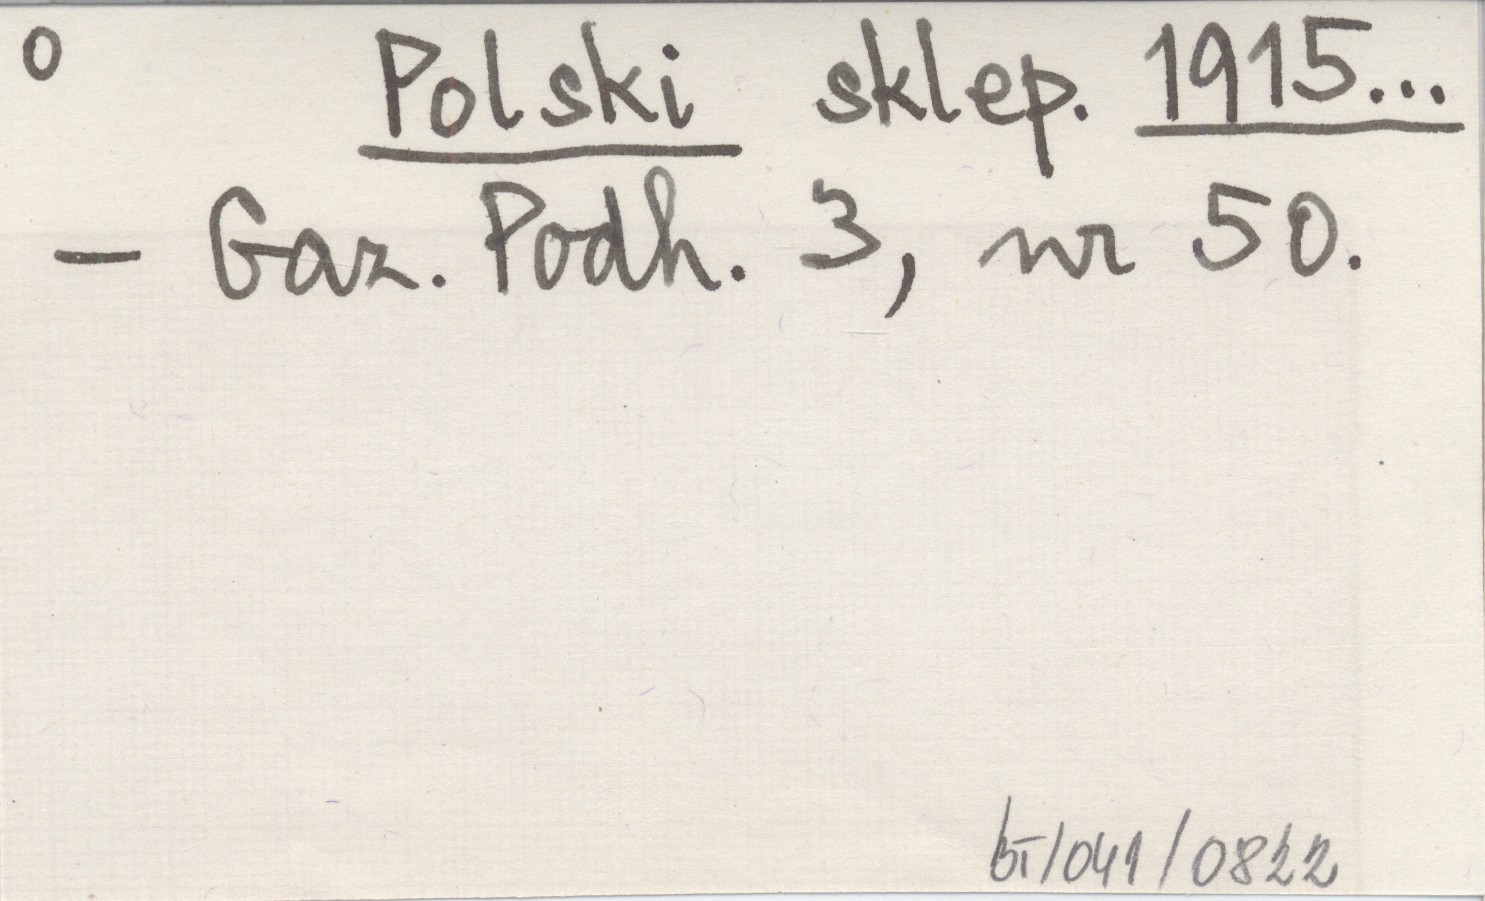 o Polski sklep. 1915...
– Gaz. Podh. 3, nr 50.
bi/041/0822